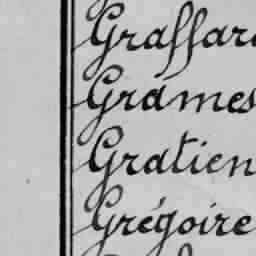 Graffar
Grames
Gratien
Grégoire